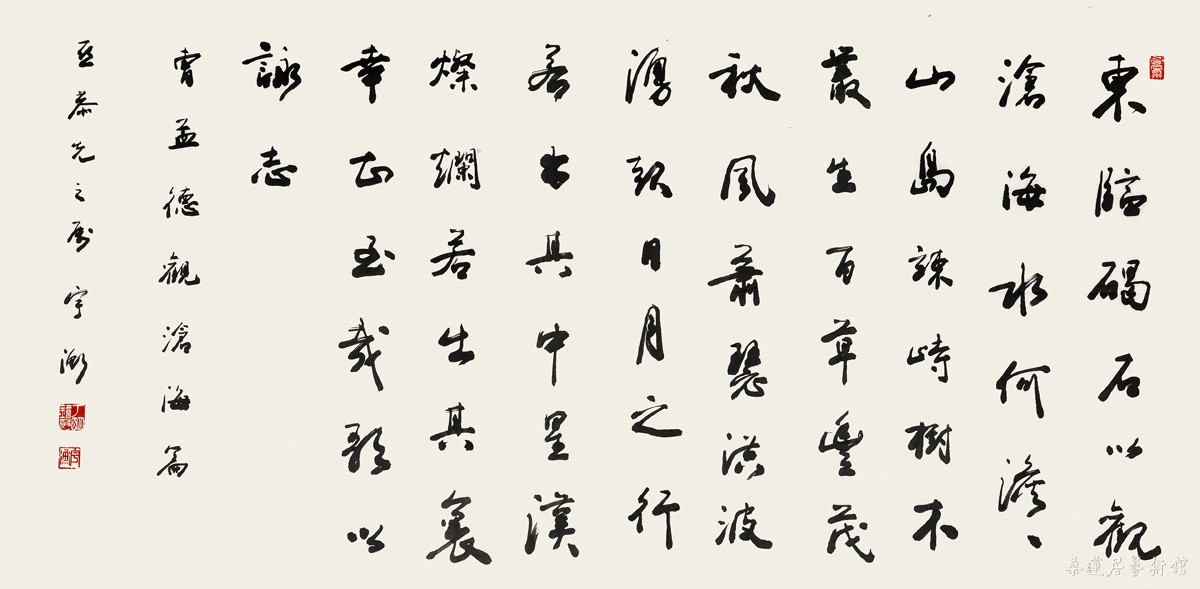 東臨碣石以觀
滄海水何澹〻
山島竦峙樹木
叢生百草豐茂
秋風蕭瑟洪波
湧起日月之行
若出其中星漢
燦爛若出其裏
幸甚至哉歌以
詠志
曹孟德觀滄海篇
恭先之屬宇
桑蓮居藝術館